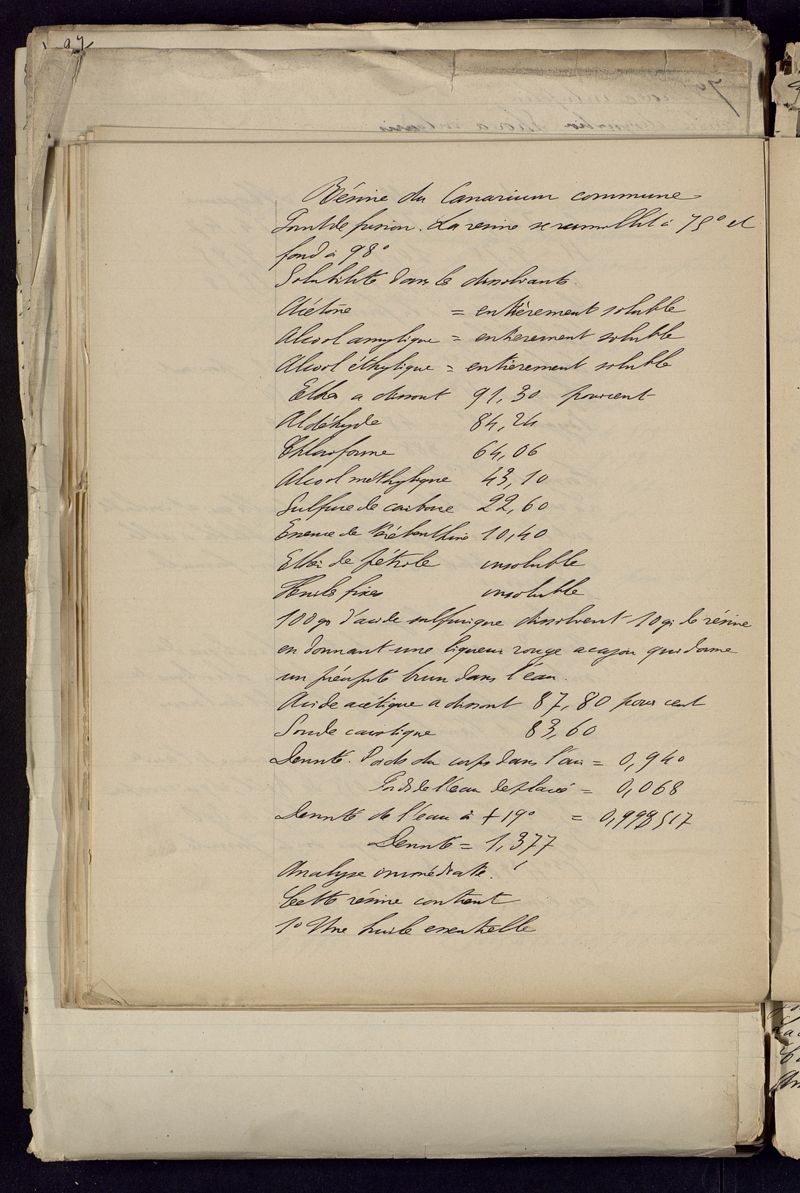 97
Résine du Canarium commune
Point de fusion. La résine se ramollit à 75° et
fond à 98°
Solubilité dans le dissolvants.
Acétone = entièrement soluble
Alcool amylique = entièrement soluble
Alcool éthylique = entièrement soluble
Ether a dissout 91,30 pour cent
Aldéhyde 84,24
Chloroforme 64,06
Alcool méthylique 43,10
Sulfure de carbone 22,60
Essence de Térébenthine 10,40
Ether de pétrole insoluble
Huiles fixes insoluble
100 gr d'acide sulfurique dissolvent 10 gr de résine
en donnant une liqueur rouge acajou qui donne
un précipité brun dans l'eau.
Acide acétique a dissout 87,80 pour cent
Soude caustique 83,60
Densité. Poids du corps dans l'air = 0,940
Poids de l'eau déplacée = 0,068
Densité de l'eau à + 19° = 0,998517
Densité = 1,377
Analyse immédiate.
Cette résine contient
1° Une huile essentielle